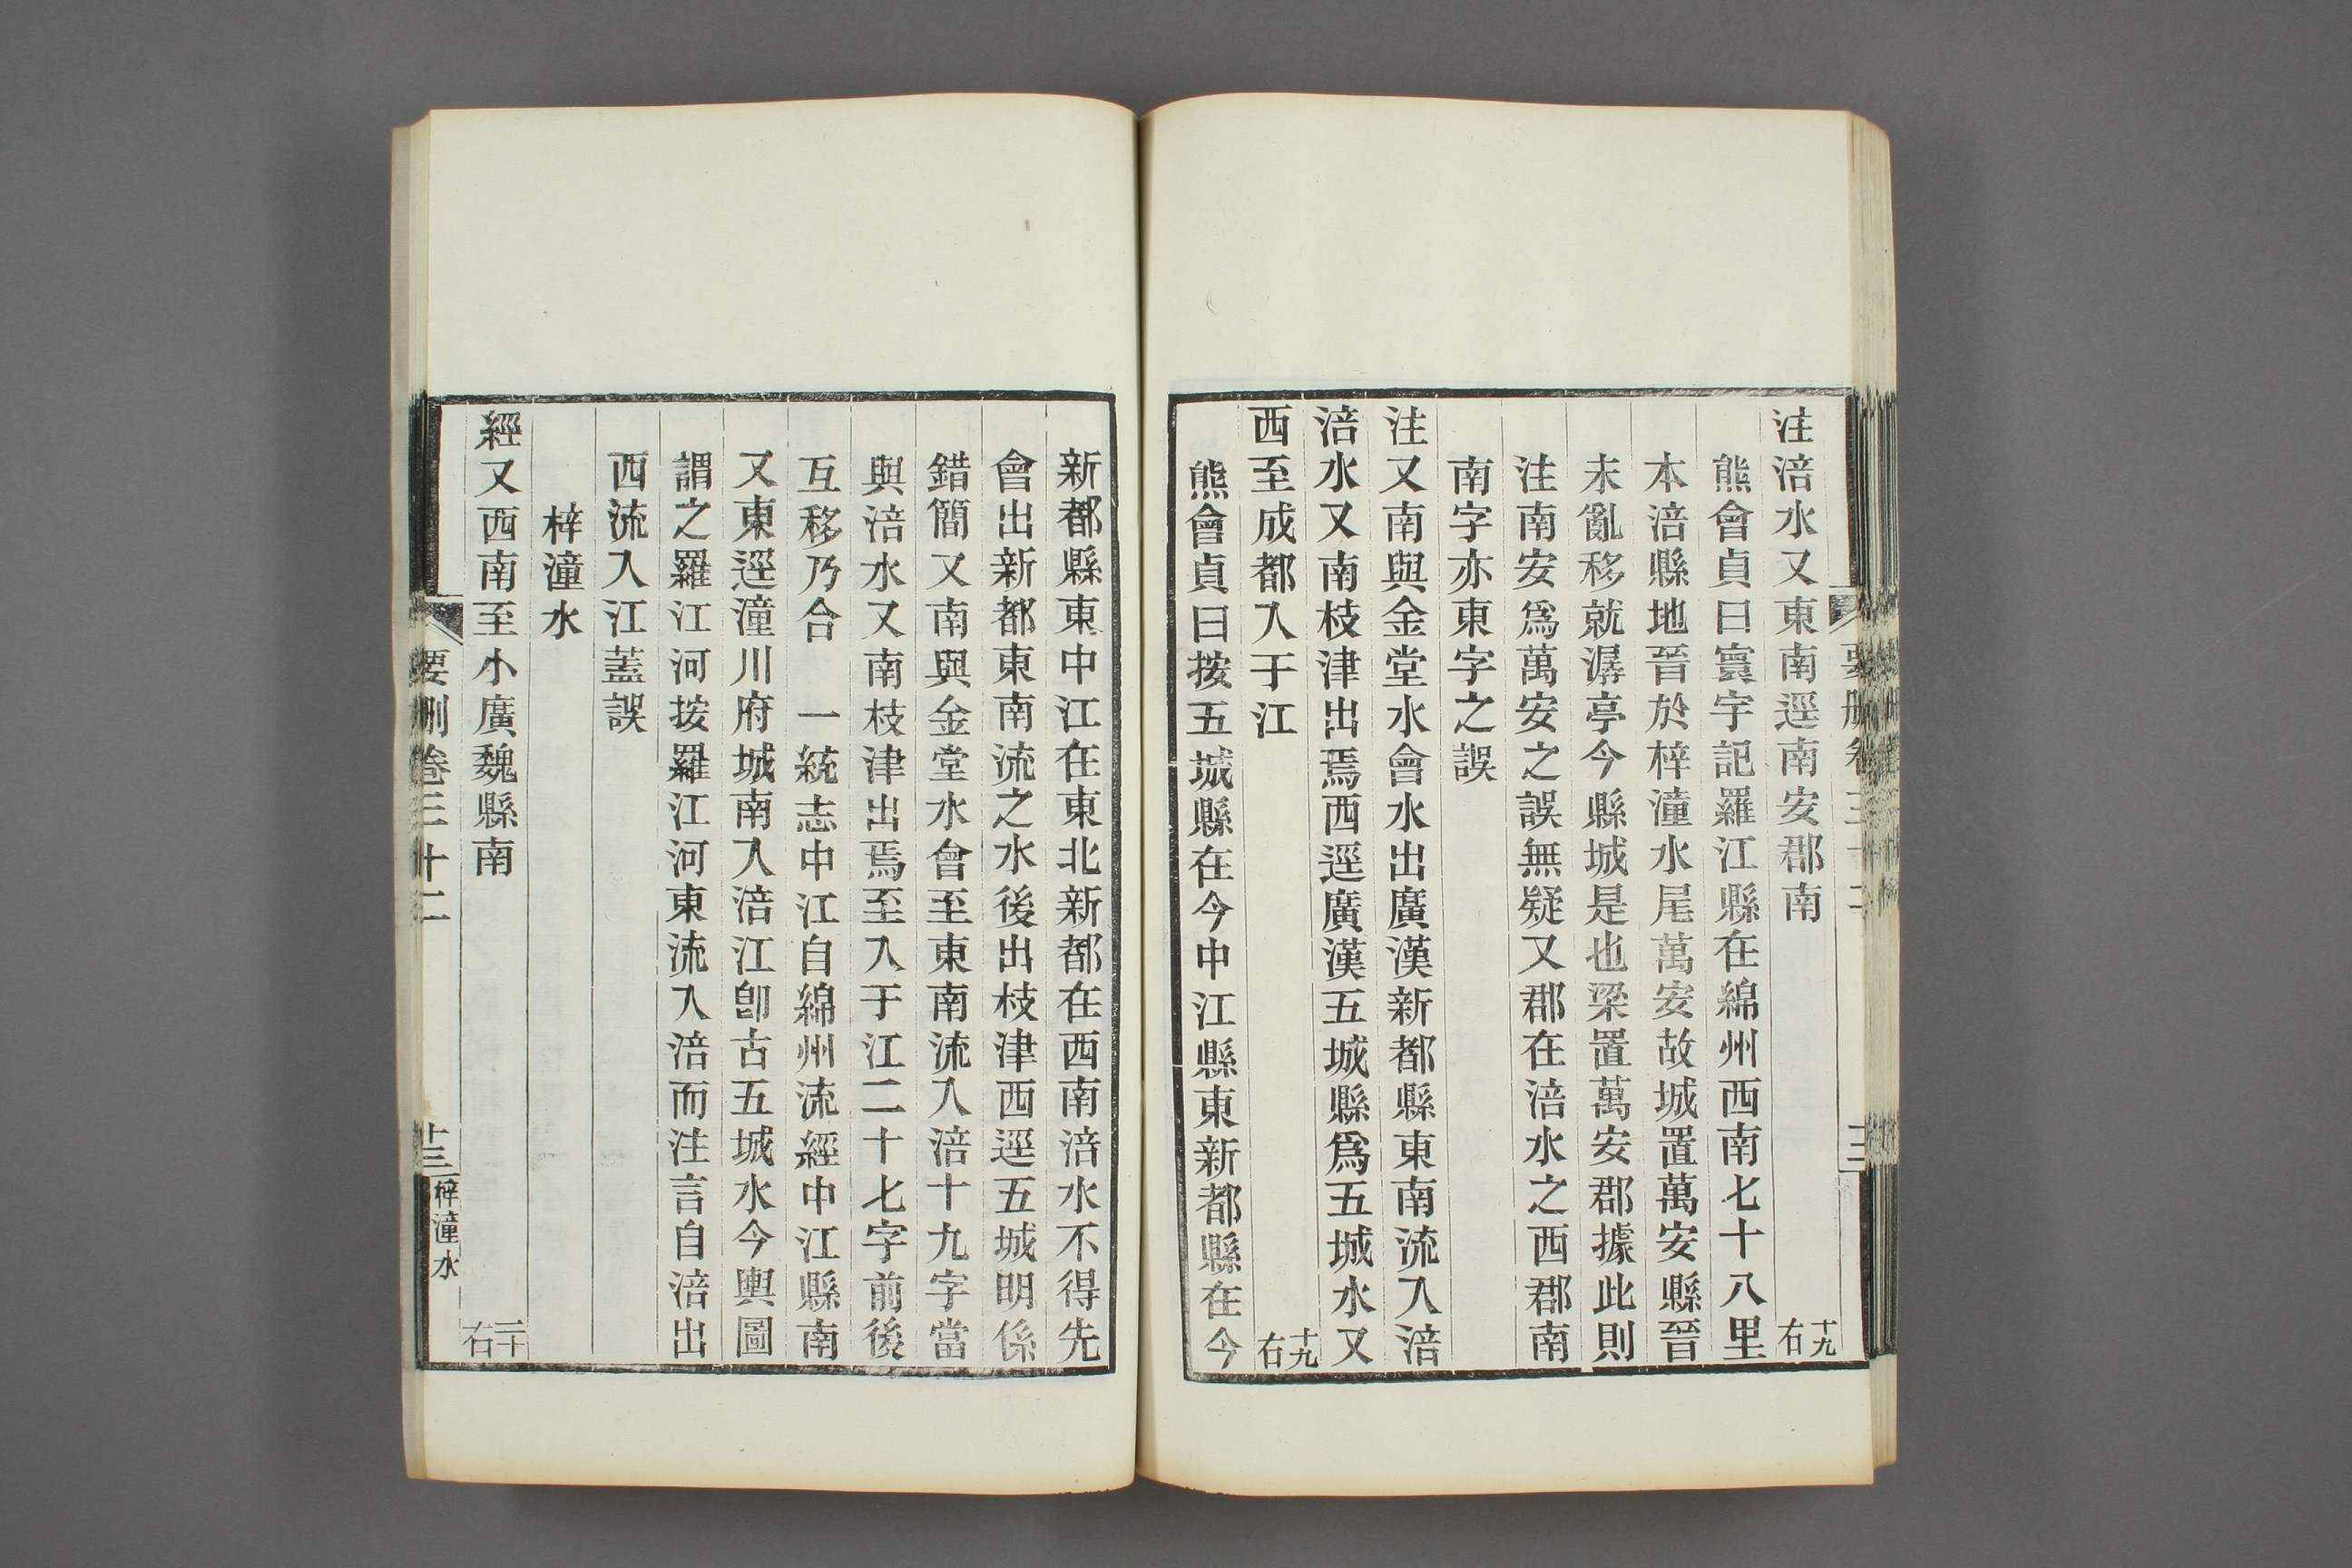 注涪水又東南逕南安郡南 十九右
熊會貞曰寰宇記羅江縣在綿州西南七十八里
本涪縣地晉於梓潼水尾萬安故城置萬安縣晉
末亂移就潺亭今縣城是也梁置萬安郡據此則
注南安爲萬安之誤無疑又郡在涪水之西郡南
南字亦東字之誤
注又南與金堂水會水出廣漢新都縣東南流入涪
涪水又南枝津出焉西逕廣漢五城縣爲五城水又
西至成都入于江 十九右
熊會貞曰按五城縣在今中江縣東新都縣在今
新都縣東中江在東北新都在西南涪水不得先
會出新都東南流之水後出枝津西逕五城明係
錯簡又南與金堂水會至東南流入涪十九字當
與涪水又南枝津出焉至入于江二十七字前後
互移乃合 一統志中江自綿州流經中江縣南
又東逕潼川府城南入涪江卽古五城水今輿圖
謂之羅江河按羅江河東流入涪而注言自涪出
西流入江蓋誤
梓潼水
經又西南至小廣魏縣南 二十右
要刪卷三十二 十三 梓潼水